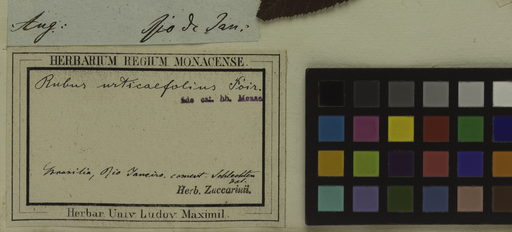 Aug: Rio de Jan:
HERBARIUM REGIUM MONACENSE.
Rubus urticaefolius Poir.
Brasilia, Rio Janeiro.
Herb. Zuccarinii.
Herbar. Univ. Ludov. Maximil.